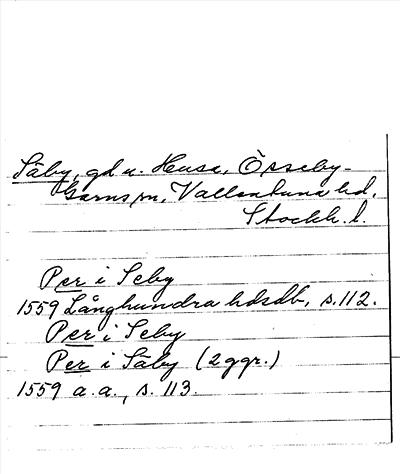 Säby, gd u. Husa, Össeby-
Garns sn, Vallentuna hd,
Stockh. l.
Per i Seby
1559 Långhundra hdsdb, s. 112.
Per i Seby
Per i Säby (2 ggr.)
1559 a. a., s. 113.